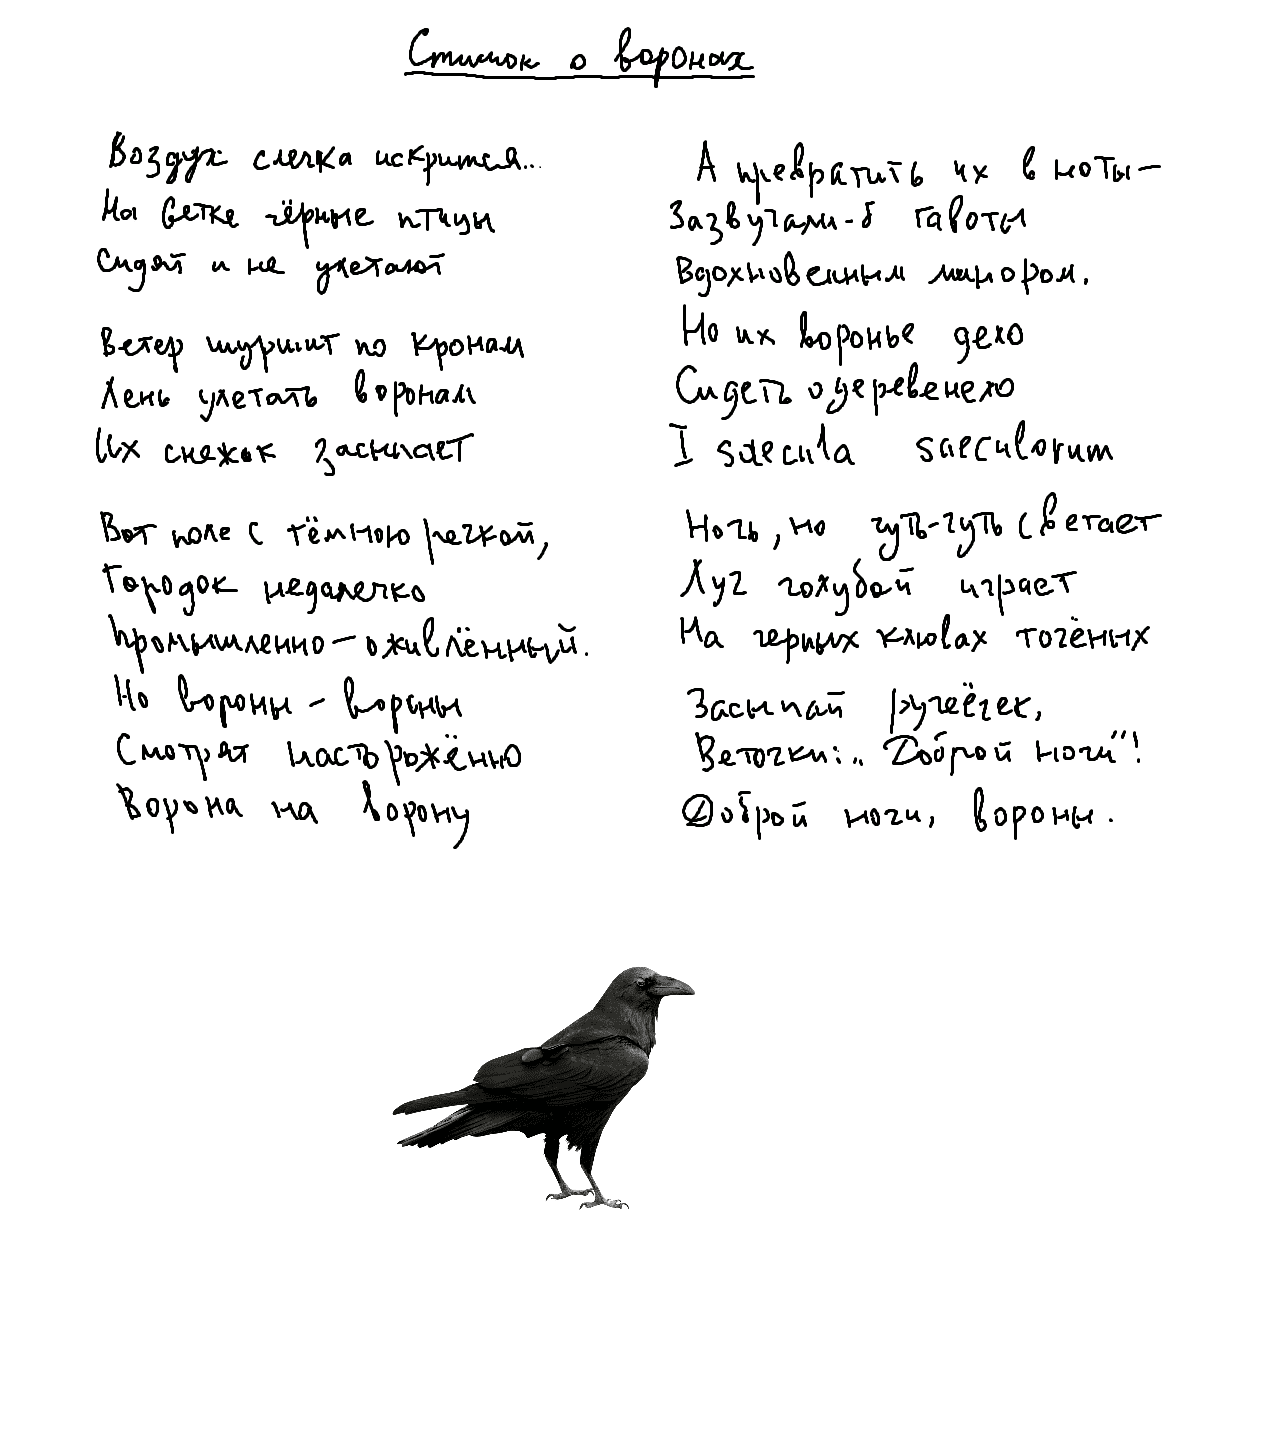 Стишок о воронах
Воздух слегка искрится...
На ветке чёрные птицы
Сидят и не улетают
Ветер шуршит по кронам
Лень улетать воронам
Их снежок засыпает
Вот поле с тёмною речкой,
Городок недалечко
Промышленно-оживлённый.
Но вороны - вороны
Смотрят насторожённо
Ворона на ворону
А превратить их в ноты—
Зазвучали-б гавоты
Вдохновенным минором.
Но их воронье дело
Сидеть одеревенело
I saecula saeculorum
Ночь, но чуть-чуть светает
Луч голубой играет
На черных клювах точёных
Засыпай ручеёчек,
Веточки: „Доброй ночи"!
Доброй ночи, вороны.